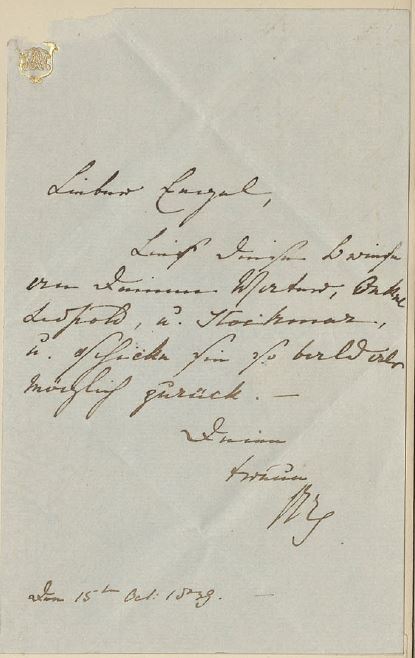 Lieber Engel,
Lies diese Briefe
an Deinen Vater, Onkel
Leopold, u. Stockmar,
u. schicke sie so bald als
möglich zurück. —
Deine
treue
Den 15ten Oct: 1839. —